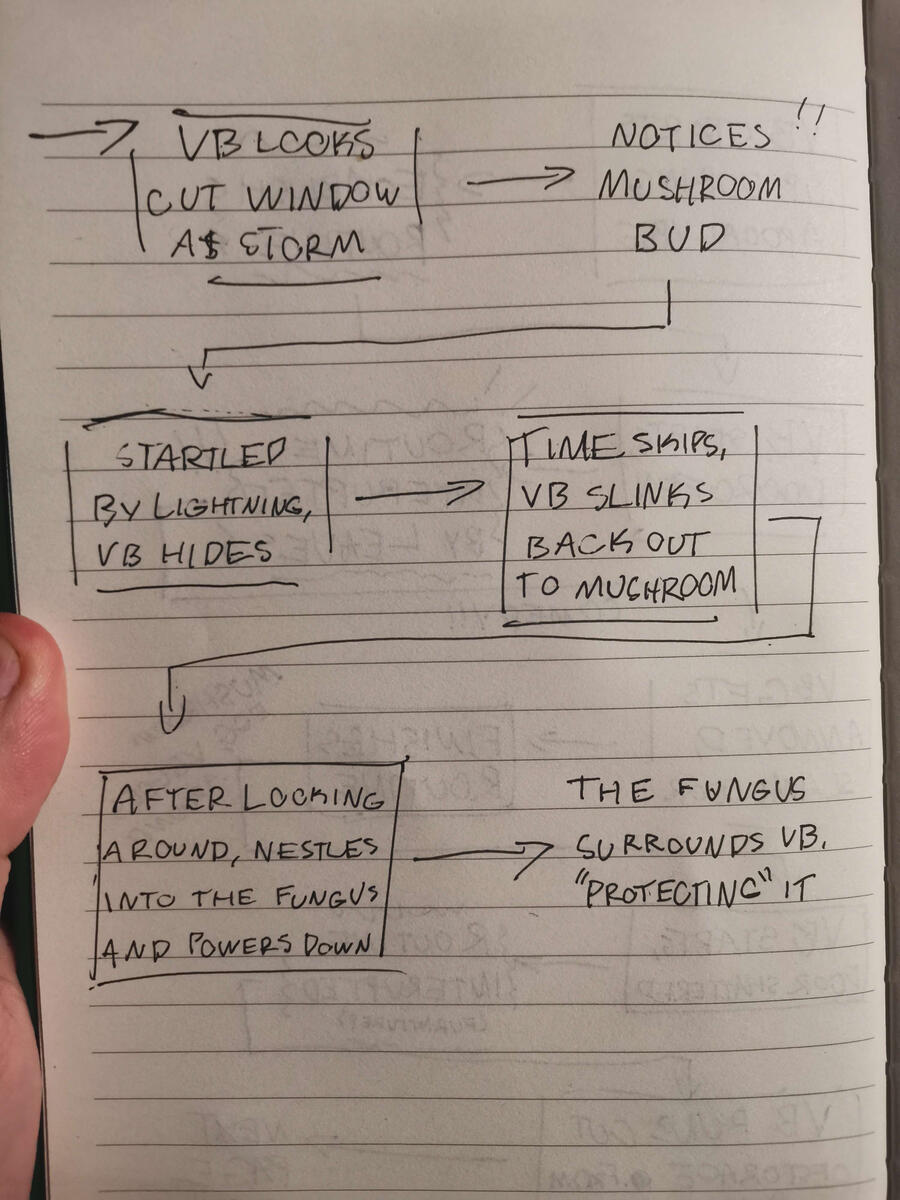 VB LOOKS
OUT WINDOW
AS STORM
NOTICES !!
MUSHROOM
BUD
STARTLED
BY LIGHTNING,
VB HIDES
TIME SKIPS,
VB SLINKS
BACK OUT
TO MUSHROOM
AFTER LOOKING
AROUND, NESTLES
INTO THE FUNGUS
AND POWERS DOWN
THE FUNGUS
SURROUNDS VB.
"PROTECTING" IT